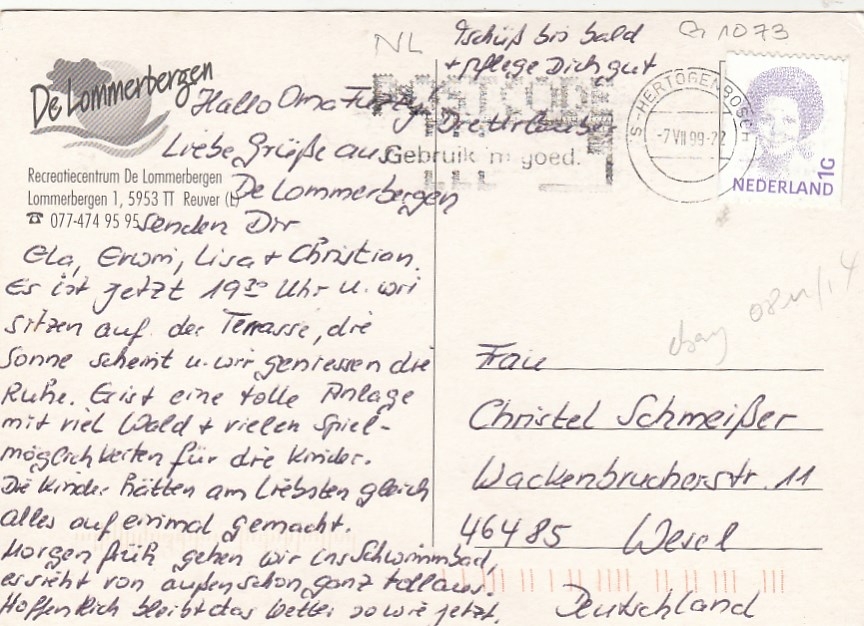 NL
1073
De Lommerbergen
Recreatiecentrum De Lommerbergen
Lommerbergen 1, 5953 TT Reuver (L)
☎ 077-474 95 95
Hallo Oma
Liebe Grüße aus
De Lommerbergen
senden Dir
Ela, Erwin, Lisa + Christian.
Es ist jetzt 19³⁰ Uhr u. wir
sitzen auf der Terrasse, die
Sonne scheint u. wir geniessen die
Ruhe. Es ist eine tolle Anlage
mit viel Wald + vielen Spiel-
möglichkeiten für die Kinder.
Die Kinder hätten am Liebsten gleich
alles auf einmal gemacht.
Morgen früh gehen wir ins Schwimmbad,
es sieht von außen schon ganz toll aus.
Hoffentlich bleibt das Wetter so wie jetzt.
Tschüß bis bald
+ pflege Dich gut
Die Urlauber
POSTCODE
Gebruik 'm goed.
'S-HERTOGENBOSCH
-7 VII 99-22
1G
NEDERLAND
Frau
Christel Schmeißer
Wackenbrucherstr. 11
46485 Wesel
Deutschland